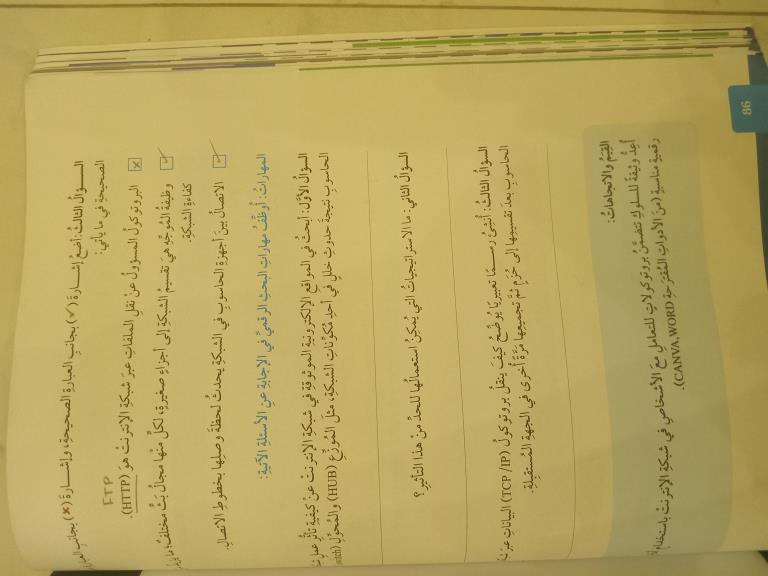 السؤال الثالث: أضع إشارة (✓) بجانب العبارة الصحيحة، وإشارة (✗) بجانب العبارة
الصحيحة في ما يأتي:
البروتوكول المسؤول عن نقل الملفات عبر شبكة الإنترنت هو (HTTP).
FTP
وظيفة الموجه هي تقسيم الشبكة إلى أجزاء صغيرة، لكل منها مجال بث مختلف؛ ما
كفاءة الشبكة.
الاتصال بين أجهزة الحاسوب في الشبكة يحدث لحظة وصلها بخطوط الاتصال.
المهارات: أوظف مهارات البحث الرقمي في الإجابة عن الأسئلة الآتية:
السؤال الأول: أبحث في المواقع الإلكترونية الموثوقة في شبكة الإنترنت عن كيفية تأثر
الحاسوب نتيجة حدوث خلل في أحد مكونات الشبكة، مثل الموزع (HUB) والمحول
السؤال الثاني: ما الاستراتيجيات التي يمكن استعمالها للحد من هذا التأثير؟
السؤال الثالث: أنشئ رسما تعبيريا يوضح كيف ينقل بروتوكول (TCP/IP) البيانات عبر
الحاسوب بعد تقسيمها إلى حزم ثم تجميعها مرة أخرى في الجهة المستقبلة.
القيم والاتجاهات:
أعد وثيقة للسلوك تتضمن بروتوكولات للتعامل مع الأشخاص في شبكة الإنترنت باستخدام
رقمية مناسبة (من الأدوات المقترحة CANVA,WORD).
86